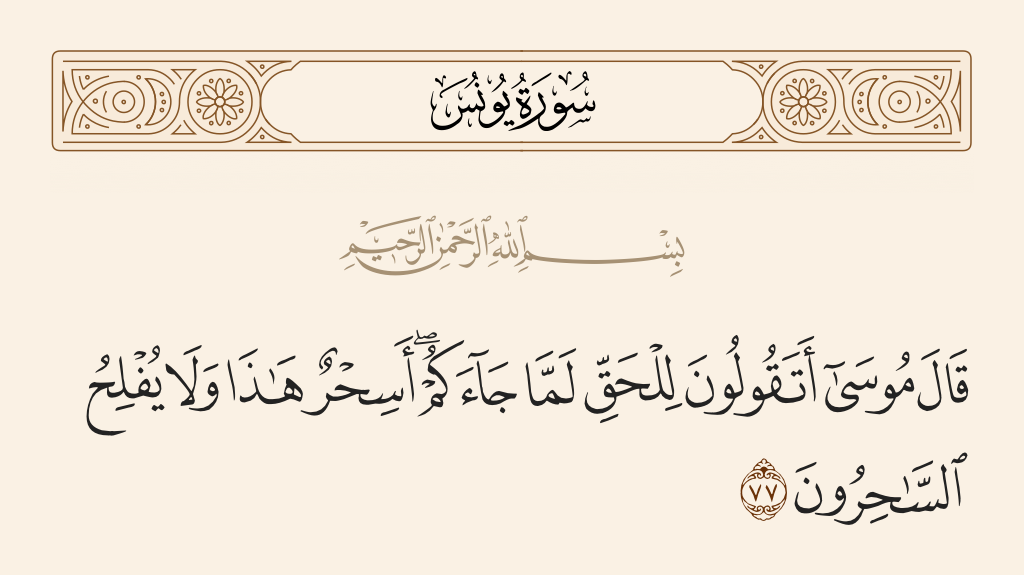 سُورَةُ يُونُسَ
بِسْمِ ٱللَّهِ ٱلرَّحْمَٰنِ ٱلرَّحِيمِ
قَالَ مُوسَىٰٓ أَتَقُولُونَ لِلْحَقِّ لَمَّا جَآءَكُمْ ۖ أَسِحْرٌ هَٰذَا وَلَا يُفْلِحُ
ٱلسَّٰحِرُونَ ٧٧